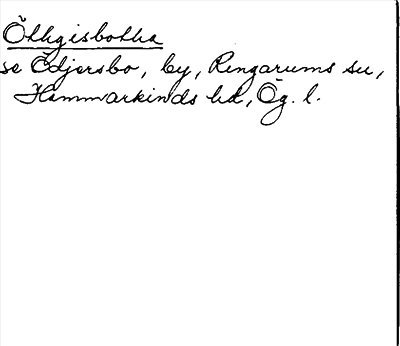 Ötkgisbotka
se Ödjersbo, by, Ringarums su,
Hammarkinds hd, Ög. l.